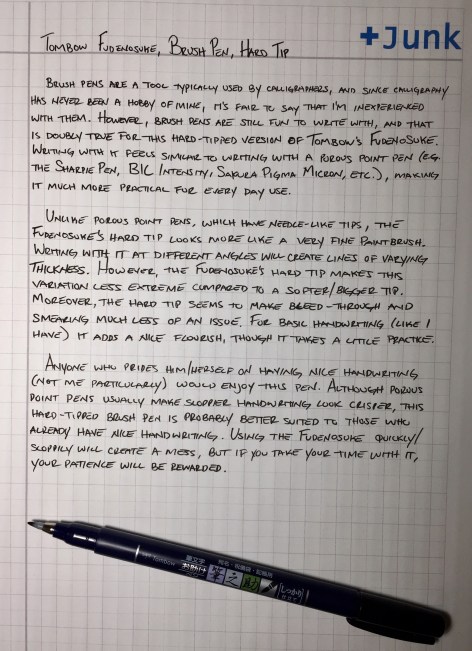 +Junk
Tombow Fudenosuke, Brush Pen, Hard Tip
Brush pens are a tool typically used by calligraphers, and since calligraphy
has never been a hobby of mine, it's fair to say that I'm inexperienced
with them. However, brush pens are still fun to write with, and that
is doubly true for this hard-tipped version of Tombow's Fudenosuke.
Writing with it feels similar to writing with a porous point pen (e.g.
the Sharpie Pen, BIC Intensity, Sakura Pigma Micron, etc.), making
it much more practical for every day use.
Unlike porous point pens, which have needle-like tips, the
Fudenosuke's hard tip looks more like a very fine paintbrush.
Writing with it at different angles will create lines of varying
thickness. However, the Fudenosuke's hard tip makes this
variation less extreme compared to a softer/bigger tip.
Moreover, the hard tip seems to make bleed-through and
smearing much less of an issue. For basic handwriting (like I
have) it adds a nice flourish, though it takes a little practice.
Anyone who prides him/herself on having nice handwriting
(not me particularly) would enjoy this pen. Although porous
point pens usually make sloppier handwriting look crisper, this
hard-tipped brush pen is probably better suited to those who
already have nice handwriting. Using the Fudenosuke quickly/
sloppily will create a mess, but if you take your time with it,
your patience will be rewarded.
Tombow 筆之助 しっかり